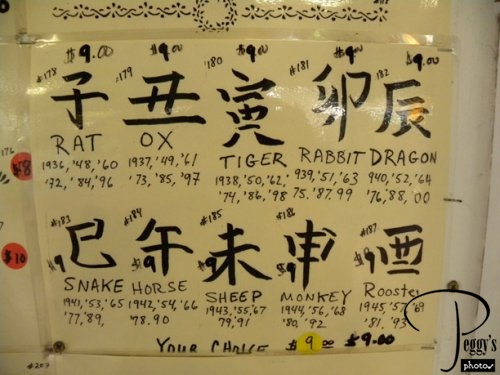 $9.00 $9.00 $9.00 $9.00 $9.00
#178 #179 #180 #181 182
子 丑 寅 卯 辰
RAT OX TIGER RABBIT DRAGON
1936, '48, '60 1937, '49, '61 1938, '50, 62, 939, '51, '63 940, '52, '64
'72, '84, '96 '73, '85, '97 '74, '86, '98 75, '87. 99 '76, 88, 00
176
$8
#183 #184 #185 #186 #187
巳 午 未 申 酉
$9 $9 $9 $9 $9
$10
SNAKE HORSE SHEEP MONKEY Rooster
1941, '53, '65 1942, '54, '66 1943, '55, 67 1944, '56, '68 1945, '57, '69
'77, '89, 78. 90 79, '91 '80, '92 '81, '93
YOUR CHOICE $9.00 $9.00
#207
Peggy's
photos